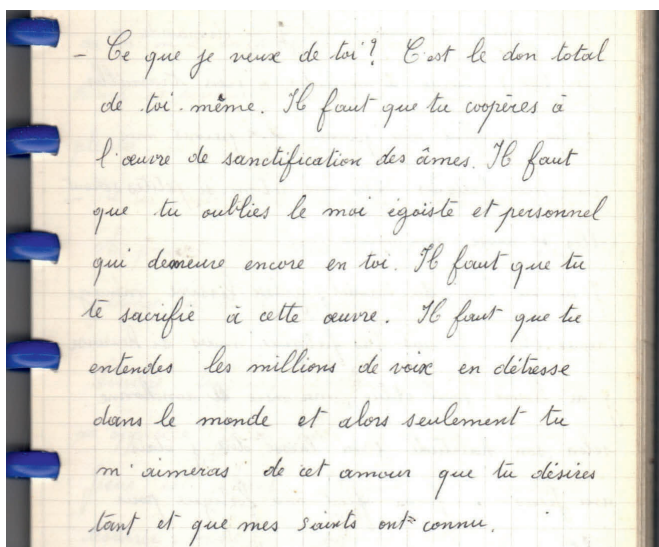 - Ce que je veux de toi ? C'est le don total
de toi-même. Il faut que tu coopères à
l'œuvre de sanctification des âmes. Il faut
que tu oublies le moi égoiste et personnel
qui demeure encore en toi. Il faut que tu
te sacrifie à cette œuvre. Il faut que tu
entendes les millions de voix en détresse
dans le monde et alors seulement tu
m'aimeras de cet amour que tu désires
tant et que mes saints ont connu.